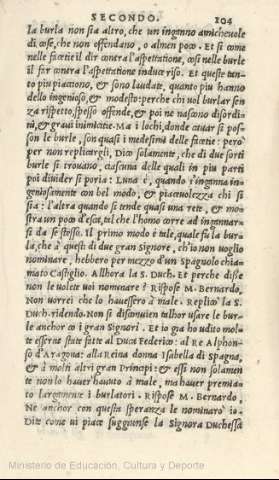 SECONDO. 104
la burla non sia altro, che un inganno amichevole
di cose, che non offendano, o almen poco. Et si come
nelle facetie il dir contra l'aspettatione, cosi nelle burle
il far contra l'aspettatione induce riso. Et queste tan-
to piu piacciono, & sono laudate, quanto piu hanno
dello ingenioso, & modesto: perche chi vol burlar sen-
za rispetto, spesso offende, & poi ne nascono disordi-
ni, & gravi inimicitie. Ma i lochi, donde cavar si pos-
son le burle, son quasi i medesimi delle facetie: pero
per non replicargli, Dico solamente, che di due sorti
burle si trovano, ciascuna delle quali in piu parti
poi dividér si poria: L'una è, quando s'inganna in-
geniosamente con bel modo, & piacevolezza chi si
sia: l'altra quando si tende quasi una rete, & mo-
stra un poco d'esca, tal che l'homo corre ad ingannar-
si da se stesso. Il primo modo è tale, quale fu la bur-
la, che à questi dì due gran Signore, ch'io non voglio
nominare, hebbero per mezzo d'un Spagnuolo chia-
mato Castiglio. Allhora la S. Duch. Et perche disse
non le volete voi nominare? Rispose M. Bernardo.
Non vorrei che lo havessero à male. Replicò la S.
Duch. ridendo. Non si disconvien talhor usare le bur-
le anchor co i gran Signori. Et io gia ho udito molte
esserne state fatte al Duca Federico: al Re Alphon-
so d'Aragona: alla Reina donna Isabella di Spagna,
& à molti altri gran Principi: & essi non solamen-
te non lo haver havuto à male, ma haver premia-
to largamente i burlatori. Rispose M. Bernardo,
Ne anchor con questa speranza le nominarò io.
Dite come vi piace suggiunse la Signora Duchessa
Ministerio de Educación, Cultura y Deporte